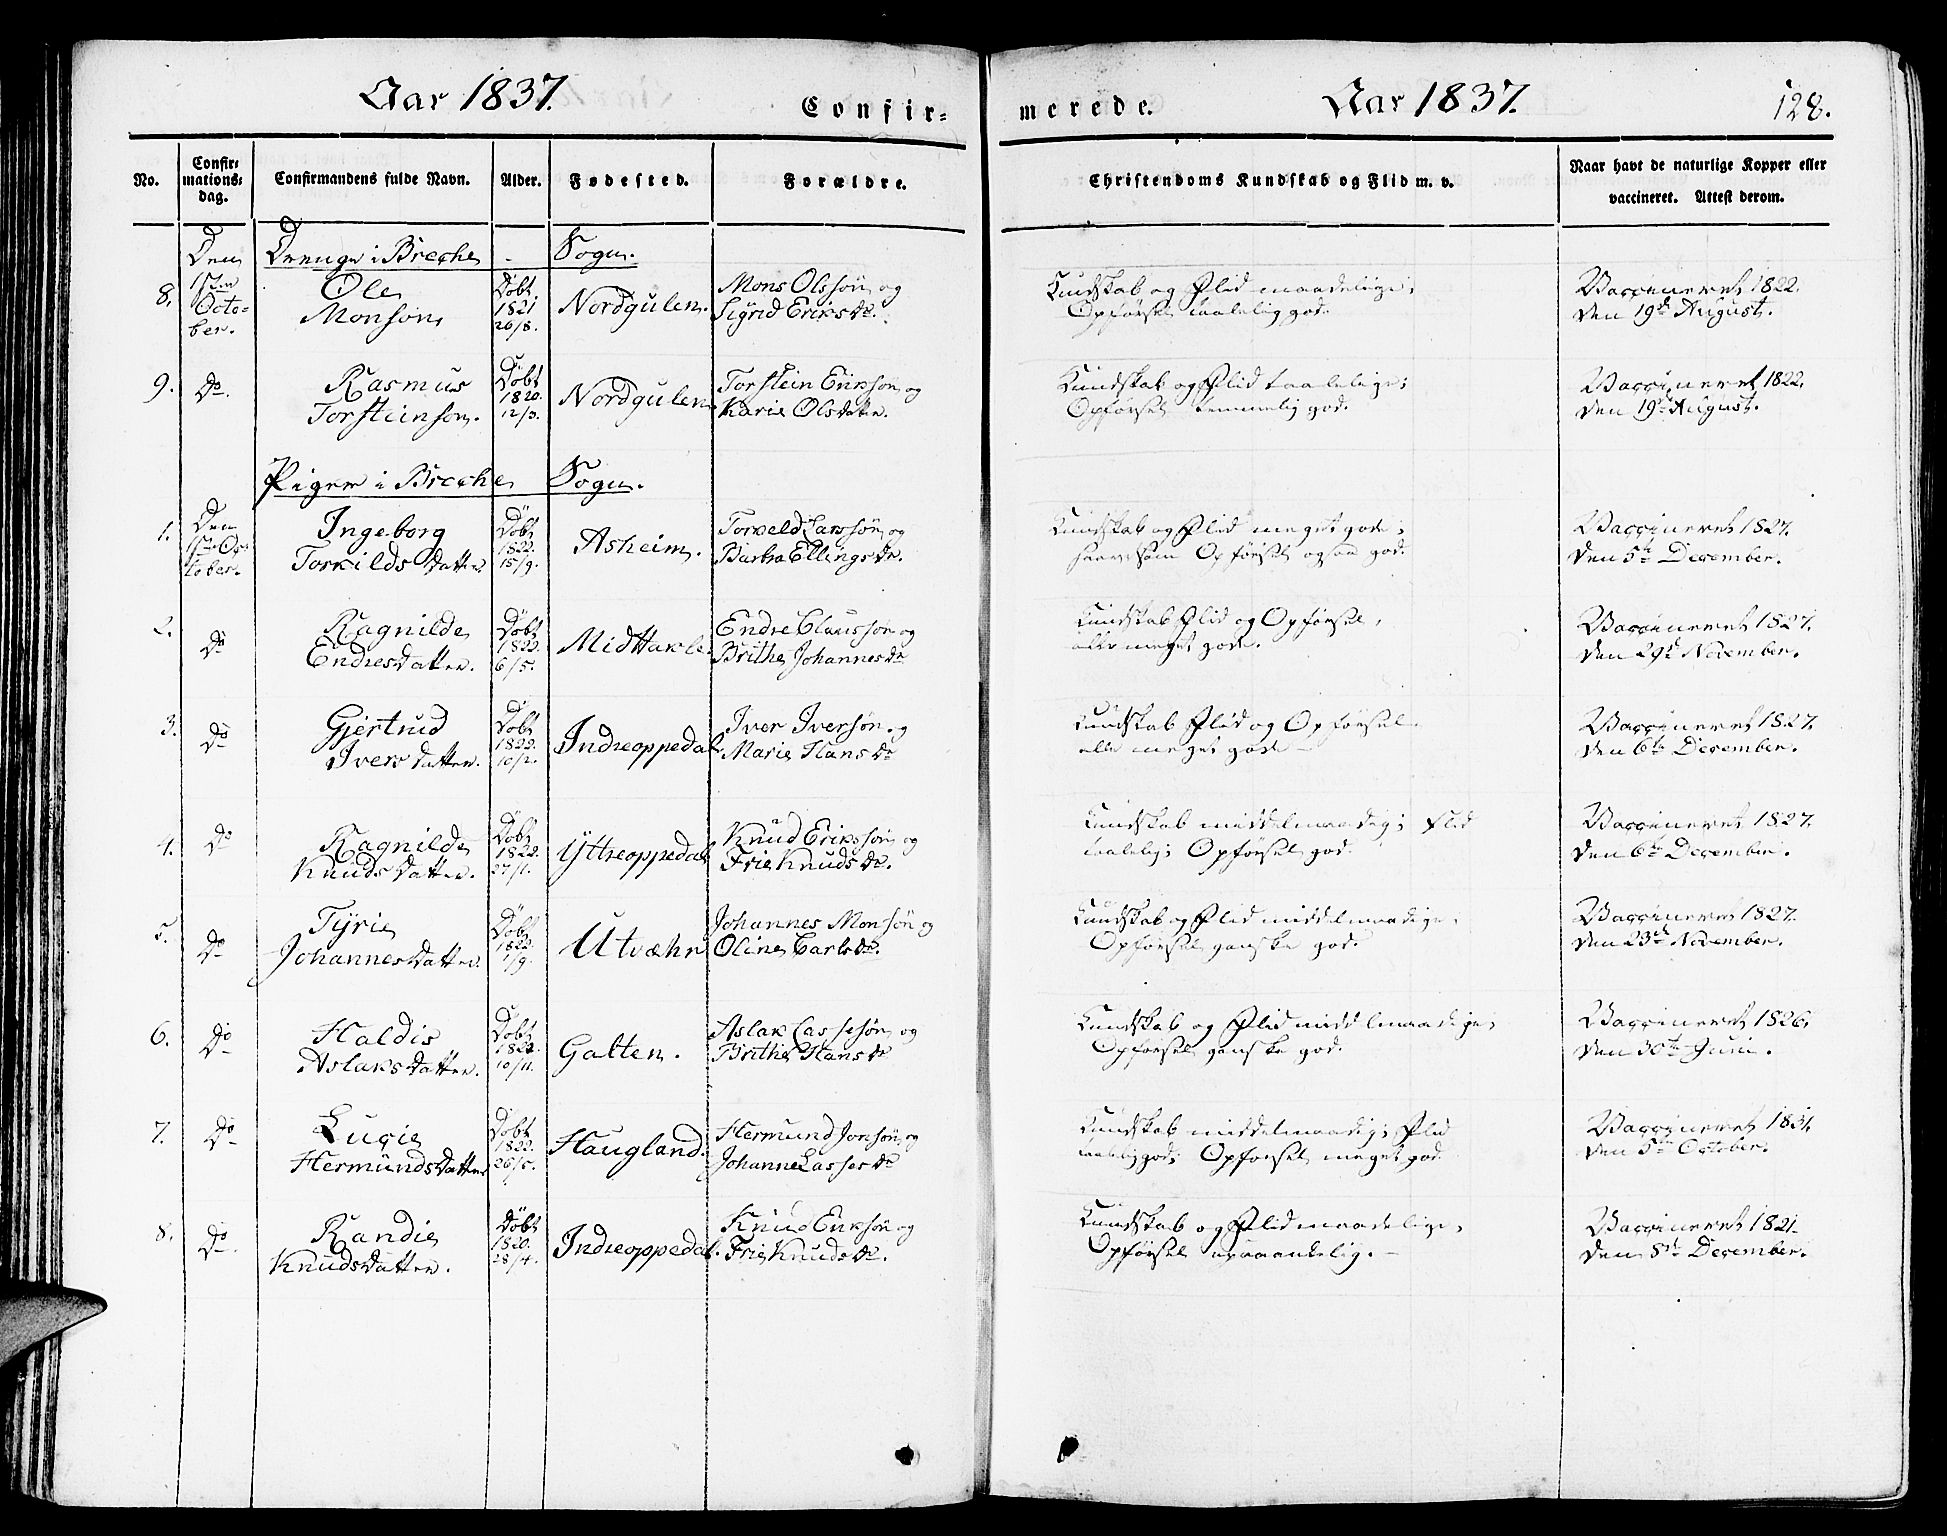 Aar 1837.
Confir-
merede.
Aar 1837.
128.
No.
Confir-
mations-
dag.
Confirmandens fulde Navn.
Alder.
Fødested.
Forældre.
Christendoms Kundskab og Flid m. v.
Naar havt de naturlige Kopper eller
vaccineret. Attest derom.
Den Drenge i Breche Sogn.
8.
Octo-
ber.
Ole
Monsøn
Døbt
1821
26/8.
Nordgulen.
Mons Olssøn og
Sigrid Eriksdr.
Kundskab og Flid maadelige;
Opførsel taalelig god.
Vaccineret 1822.
den 19de August.
9.
Do.
Rasmus
Torsteinsøn.
Døbt
1820.
12/3.
Nordgulen
Torstein Eriksøn og
Karie Olsdatter.
Kundskab og Flid taalelige;
Opførsel temmelig god.
Vaccineret 1822.
den 19de August.
Piger i Breche Sogn.
1.
Den
Oc-
tober.
Ingeborg
Torkilds datter
Døbt
1822.
15/9.
Asheim.
Torkeld Larssøn og
Barbra Ellingsdr.
Kundskab og Flid meget gode;
saavelsom Opførsel ogsaa god.
Vaccineret 1827.
den 5te December.
2.
Do
Ragnilde
Endresdatter.
Døbt
1822.
6/5.
Midttakle
Endre Claussøn og
Brithe Johannesdr
Kundskab Flid og Opførsel,
alle meget gode.
Vaccineret 1827.
den 29de November.
3.
Do
Gjertrud
Ivers datter.
Døbt
1822.
10/2.
Indreoppedal.
Iver Iversøn og
Marie Hansdr
Kundskab Flid og Opførsel
alle meget gode —
Vaccineret 1827.
den 6te December.
4.
Do
Ragnilde
Knuds datter.
Døbt
1822.
27/1.
Yttreoppedal
Knud Erikssøn og
Frie Knudsdr.
Kundskab middelmaadig; Flid
taalelig; Opførsel god.
Vaccineret 1827.
den 6te December.
5.
Do
Tyrie
Johannesdatter.
Døbt
1822.
1/9.
Utvæhr
Johannes Monsøn og
Oline Carlsdr.
Kundskab og Flid middelmaadige.
Opførsel ganske god.
Vaccineret 1827.
den 23de November.
6.
Do
Haldis
Aslaksdatter.
Døbt
1822.
10/11.
Galten.
Aslak Lassesøn og
Brithe Hansdr
Kundskab og Flid middelmaadige,
Opførsel ganske god.
Vaccineret 1826.
den 30te Juni.
7.
Do
Lucie
Hermundsdatter
Døbt
1822.
26/5.
Haugland.
Hermund Jonsøn og
Johanne Lassesdr
Kundskab middelmaadig; Flid
taalelig god; Opførsel meget god
Vaccineret 1831.
den 5te October.
8.
Do.
Randie
Knudsdatter.
Døbt
1820.
28/4.
Indreoppedal.
Knud Eriksøn og
Frie Knudsdr.
Kundskab og Flid maadelige,
Opførsel upaaankelig. —
Vaccineret 1821.
den 8de December.